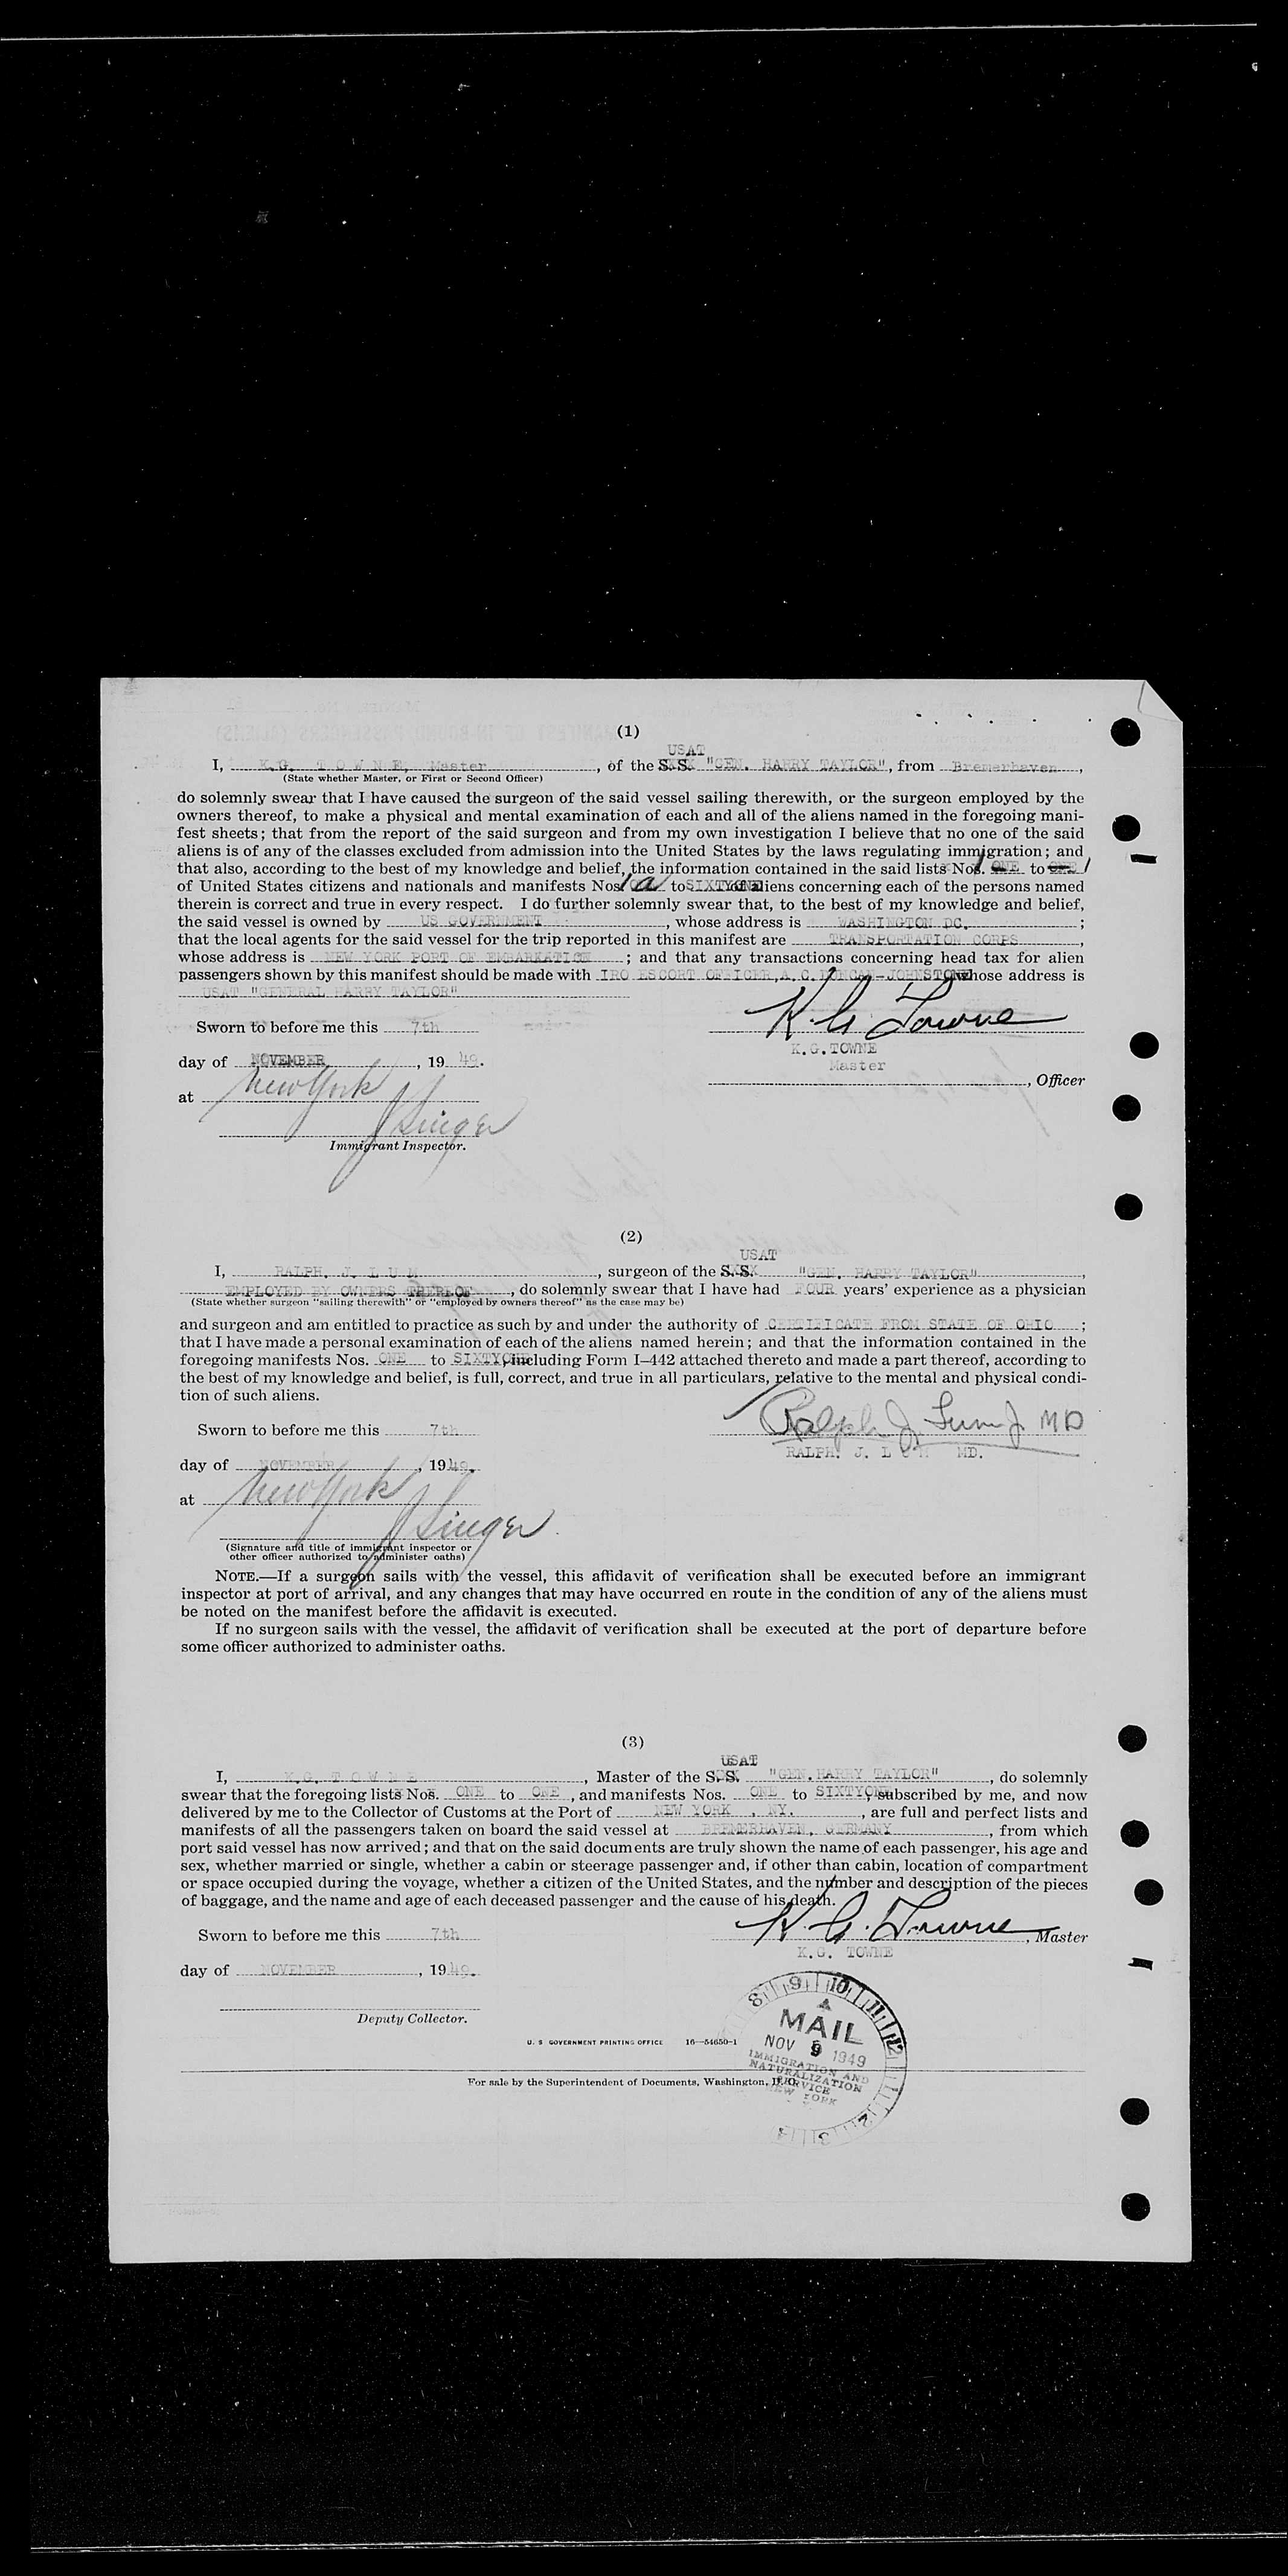 (1)
USAT
I, K.G. T O W N E, Master, of the S.S. "GEN. HARRY TAYLOR", from Bremerhaven,
(State whether Master, or First or Second Officer)
do solemnly swear that I have caused the surgeon of the said vessel sailing therewith, or the surgeon employed by the
owners thereof, to make a physical and mental examination of each and all of the aliens named in the foregoing mani-
fest sheets; that from the report of the said surgeon and from my own investigation I believe that no one of the said
aliens is of any of the classes excluded from admission into the United States by the laws regulating immigration; and
that also, according to the best of my knowledge and belief, the information contained in the said lists Nos. 1 ONE to ONE 1
of United States citizens and nationals and manifests Nos. 1a to SIXTYONE aliens concerning each of the persons named
therein is correct and true in every respect. I do further solemnly swear that, to the best of my knowledge and belief,
the said vessel is owned by US GOVERNMENT, whose address is WASHINGTON DC. ;
that the local agents for the said vessel for the trip reported in this manifest are TRANSPORTATION CORPS,
whose address is NEW YORK PORT OF EMBARKATION ; and that any transactions concerning head tax for alien
passengers shown by this manifest should be made with IRO ESCORT OFFICER, A.C. -JOHNSTON whose address is
USAT "GENERAL HARRY TAYLOR"
Sworn to before me this 7th
K. G. Towne
K.G. TOWNE
day of NOVEMBER, 19 49.
Master
, Officer
at New York
J Singer
Immigrant Inspector.
(2)
USAT
I, RALPH. J. L U M, surgeon of the S.S. "GEN. HARRY TAYLOR",
EMPLOYED BY OWNERS THEREOF, do solemnly swear that I have had FOUR years' experience as a physician
(State whether surgeon "sailing therewith" or "employed by owners thereof" as the case may be)
and surgeon and am entitled to practice as such by and under the authority of CERTIFICATE FROM STATE OF OHIO ;
that I have made a personal examination of each of the aliens named herein; and that the information contained in the
foregoing manifests Nos. ONE to SIXTYONE, including Form I-442 attached thereto and made a part thereof, according to
the best of my knowledge and belief, is full, correct, and true in all particulars, relative to the mental and physical condi-
tion of such aliens.
Ralph J. Lum J MD
Sworn to before me this 7th
RALPH. J. L U M MD.
day of NOVEMBER, 19 49.
at New York
J Singer
(Signature and title of immigrant inspector or
other officer authorized to administer oaths)
NOTE.—If a surgeon sails with the vessel, this affidavit of verification shall be executed before an immigrant
inspector at port of arrival, and any changes that may have occurred en route in the condition of any of the aliens must
be noted on the manifest before the affidavit is executed.
If no surgeon sails with the vessel, the affidavit of verification shall be executed at the port of departure before
some officer authorized to administer oaths.
(3)
USAT
I, K.G. T O W N E, Master of the S.S. "GEN. HARRY TAYLOR", do solemnly
swear that the foregoing lists Nos. ONE to ONE, and manifests Nos. ONE to SIXTYONE, subscribed by me, and now
delivered by me to the Collector of Customs at the Port of NEW YORK, NY., are full and perfect lists and
manifests of all the passengers taken on board the said vessel at BREMERHAVEN, GERMANY, from which
port said vessel has now arrived; and that on the said documents are truly shown the name of each passenger, his age and
sex, whether married or single, whether a cabin or steerage passenger and, if other than cabin, location of compartment
or space occupied during the voyage, whether a citizen of the United States, and the number and description of the pieces
of baggage, and the name and age of each deceased passenger and the cause of his death.
Sworn to before me this 7th
K. G. Towne, Master
K.G. TOWNE
day of NOVEMBER, 19 49.
Deputy Collector.
8 9 10 11 12
A
MAIL
NOV 9 1949
IMMIGRATION AND
NATURALIZATION
SERVICE
NEW YORK
2 3 4
U. S GOVERNMENT PRINTING OFFICE 16—54650-1
For sale by the Superintendent of Documents, Washington, D.C.